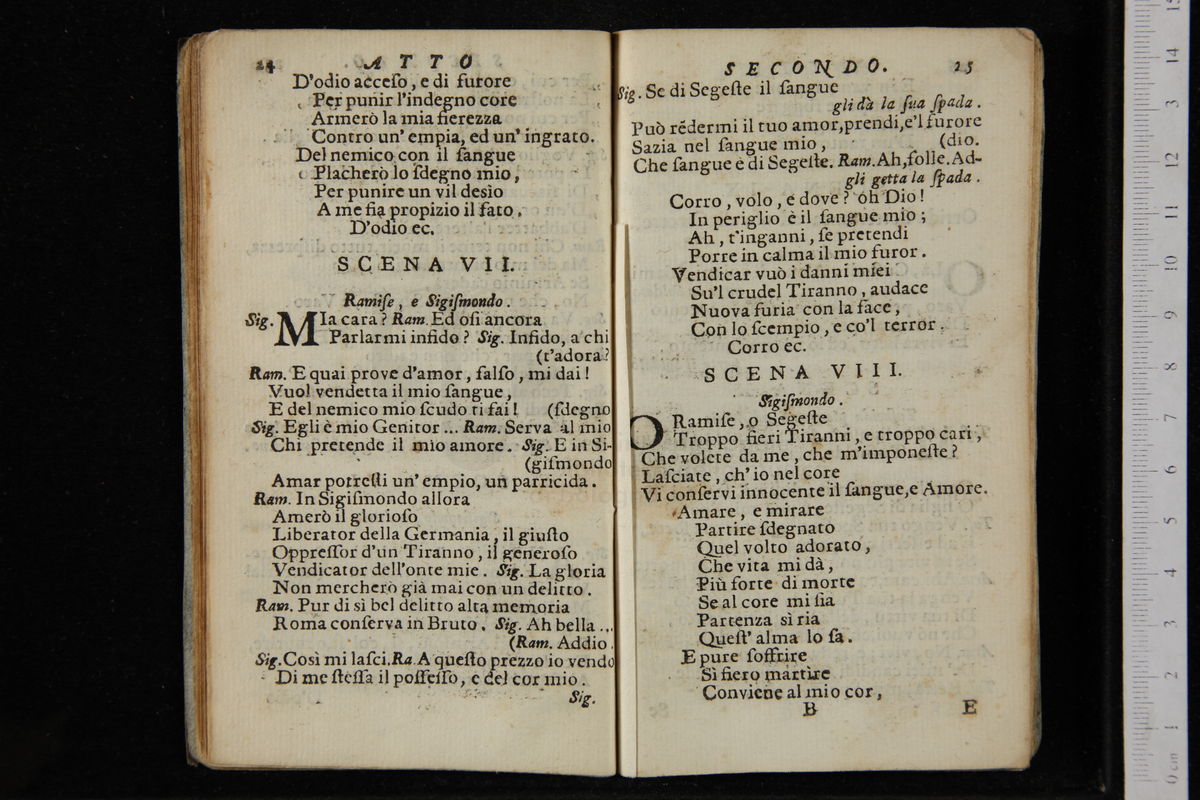 24 ATTO
D'odio acceſo, e di furore
Per punir l'indegno core
Armerò la mia fierezza
Contro un' empia, ed un' ingrato.
Del nemico con il ſangue
Placherò lo ſdegno mio,
Per punire un vil desìo
A me fia propizio il fato,
D'odio ec.
SCENA VII.
Ramiſe, e Sigiſmondo.
Sig. MIa cara? Ram. Ed oſi ancora
Parlarmi infido? Sig. Infido, a chi
(t'adora?
Ram. E quai prove d'amor, falſo, mi dai!
Vuol vendetta il mio ſangue,
E del nemico mio ſcudo ti fai! (ſdegno
Sig. Egli è mio Genitor... Ram. Serva al mio
Chi pretende il mio amore. Sig. E in Si-
(giſmondo
Amar potreſti un' empio, un parricida.
Ram. In Sigiſmondo allora
Amerò il glorioſo
Liberator della Germania, il giuſto
Oppreſſor d'un Tiranno, il generoſo
Vendicator dell'onte mie. Sig. La gloria
Non mercherò già mai con un delitto.
Ram. Pur di sì bel delitto alta memoria
Roma conſerva in Bruto. Sig. Ah bella...
(Ram. Addio.
Sig. Così mi laſci. Ra. A queſto prezzo io vendo
Di me ſteſſa il poſſeſſo, e del cor mio.
Sig.
SECONDO. 25
Sig. Se di Segeſte il ſangue
gli dà la ſua ſpada.
Può rēdermi il tuo amor, prendi, e'l furore
Sazia nel ſangue mio, (dio.
Che ſangue è di Segeſte. Ram. Ah, folle. Ad-
gli getta la ſpada.
Corro, volo, e dove? oh Dio!
In periglio è il ſangue mio;
Ah, t'inganni, ſe pretendi
Porre in calma il mio furor.
Vendicar vuò i danni miei
Su'l crudel Tiranno, audace
Nuova furia con la face,
Con lo ſcempio, e co'l terror.
Corro ec.
SCENA VIII.
Sigiſmondo.
O Ramiſe, o Segeſte
Troppo fieri Tiranni, e troppo cari,
Che volete da me, che m'imponeſte?
Laſciate, ch' io nel core
Vi conſervi innocente il ſangue, e Amore.
Amare, e mirare
Partire ſdegnato
Quel volto adorato,
Che vita mi dà,
Più forte di morte
Se al core mi ſia
Partenza sì ria
Queſt' alma lo ſa.
E pure ſoffrire
Sì fiero martìre
Conviene al mio cor,
B E